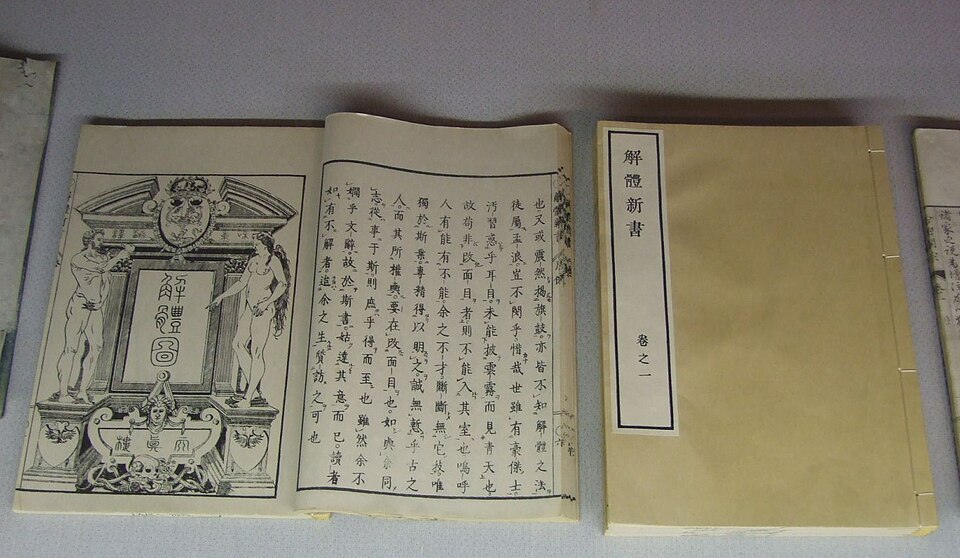 解體新書
卷之一
也。又或震然揭旗鼓。亦皆不知解體之法
徒屬孟浪。豈不閔乎。惜哉世雖有豪傑士。
汚習惑乎耳目。未能披雲霧而見青天也
故苟非改面目者。則不能入其室也。嗚呼
人有能有不能。余之不才。斷斷無它技。唯
獨於斯業。專精得以明之。誠無慙乎古之
人。而其所權輿。要在改面目也。如與余同
志。從事于斯。則庶乎得而至也。雖然余不
嫺乎文辭。故於斯書。姑達其意而已。讀者
如有不解者。追余之生。質訪之可也
解體圖
天真樓